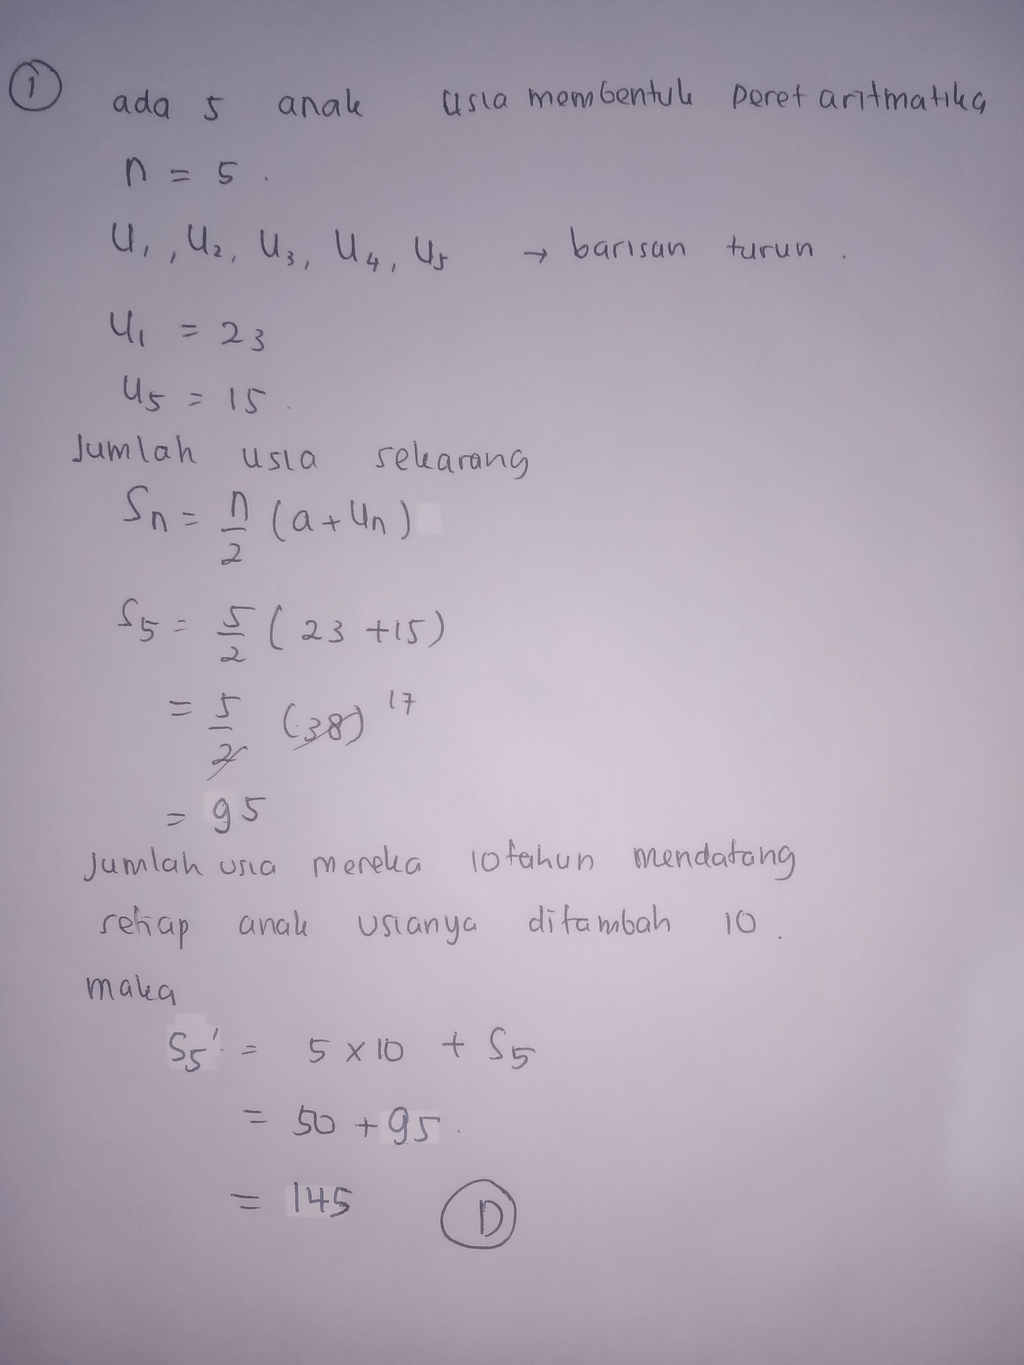 ① ada 5 anak usia membentuk Deret aritmatika
n = 5.
U₁, U₂, U₃, U₄, U₅ → barisan turun.
U₁ = 23
U₅ = 15.
Jumlah usia sekarang
Sn = n/2 (a + Un)
S₅ = 5/2 (23 + 15)
= 5/2 (38) 17
= 95
Jumlah usia mereka 10 tahun mendatang
setiap anak usianya ditambah 10.
maka
S₅' = 5 x 10 + S₅
= 50 + 95.
= 145 Ⓓ